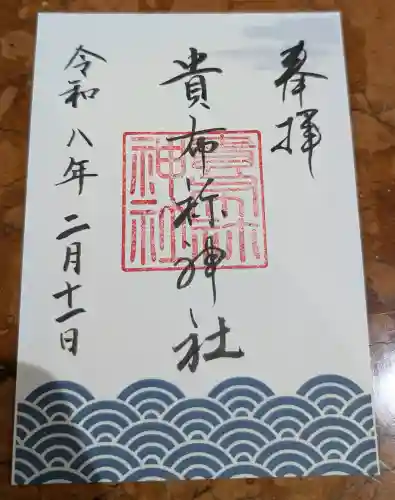 奉拝
貴布祢神社
貴布祢神社
令和八年二月十一日